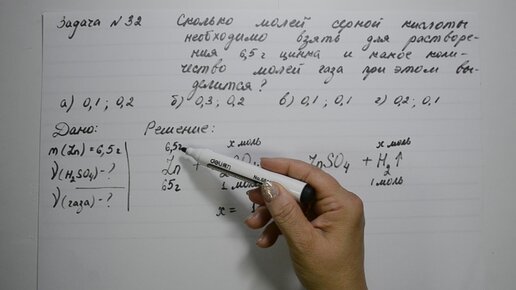 Задача N 32
Сколько молей серной кислоты
необходимо взять для растворе-
ния 6,5 г цинка и какое коли-
чество молей газа при этом вы-
делится?
а) 0,1 ; 0,2 б) 0,3 ; 0,2 в) 0,1 ; 0,1 г) 0,2 ; 0,1
Дано: Решение:
m(Zn) = 6,5 г
ν(H2SO4) - ?
ν(газа) - ?
6,5г х моль х моль
Zn + ZnSO4 + H2↑
65г 1 моль 1 моль
х =
deli